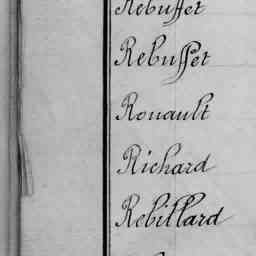 Rebuffet
Rebuffet
Rouault
Richard
Rebillard